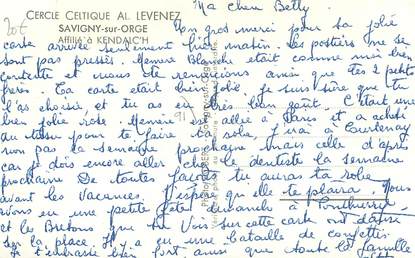 Ma chère Betty
CERCLE CELTIQUE AL LEVENEZ
SAVIGNY-sur-ORGE
Affilié à KENDALC'H
20f
Un gros merci pour ta jolie
carte arrivée seulement hier matin. Les postiers ne se
sont pas pressés. Mémère Blanche était comme moi bien
contente et nous te remercions ainsi que tes 2 petits
frères. Ta carte était bien jolie. Je suis sûre que tu
l'as choisie, et tu as eu très bien goût. C'était une
bien jolie rose. Mémère est allée à Paris et a acheté
du tissu pour te faire ta robe. J'irai à Courtenay
non pas la semaine prochaine mais celle d'après
car je dois encore aller chez le dentiste la semaine
prochaine. De toutes façons tu auras ta robe
avant les vacances. J'espère qu'elle te plaira. Nous
avons eu une petite fête dimanche à
et les Bretons que tu vois sur cette carte ont dansé
sur la place. Il y a eu une bataille de confettis
Je t'embrasse bien fort ainsi que toute la famille